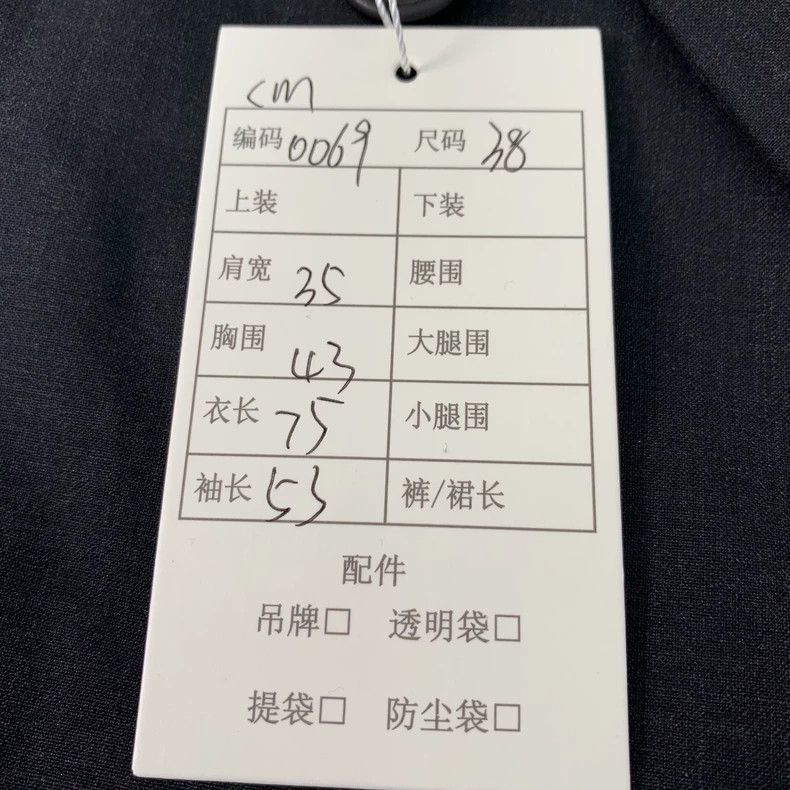 cm
编码 0069 尺码 38
上装 下装
肩宽 35 腰围
胸围 43 大腿围
衣长 75 小腿围
袖长 53 裤/裙长
配件
吊牌□ 透明袋□
提袋□ 防尘袋□